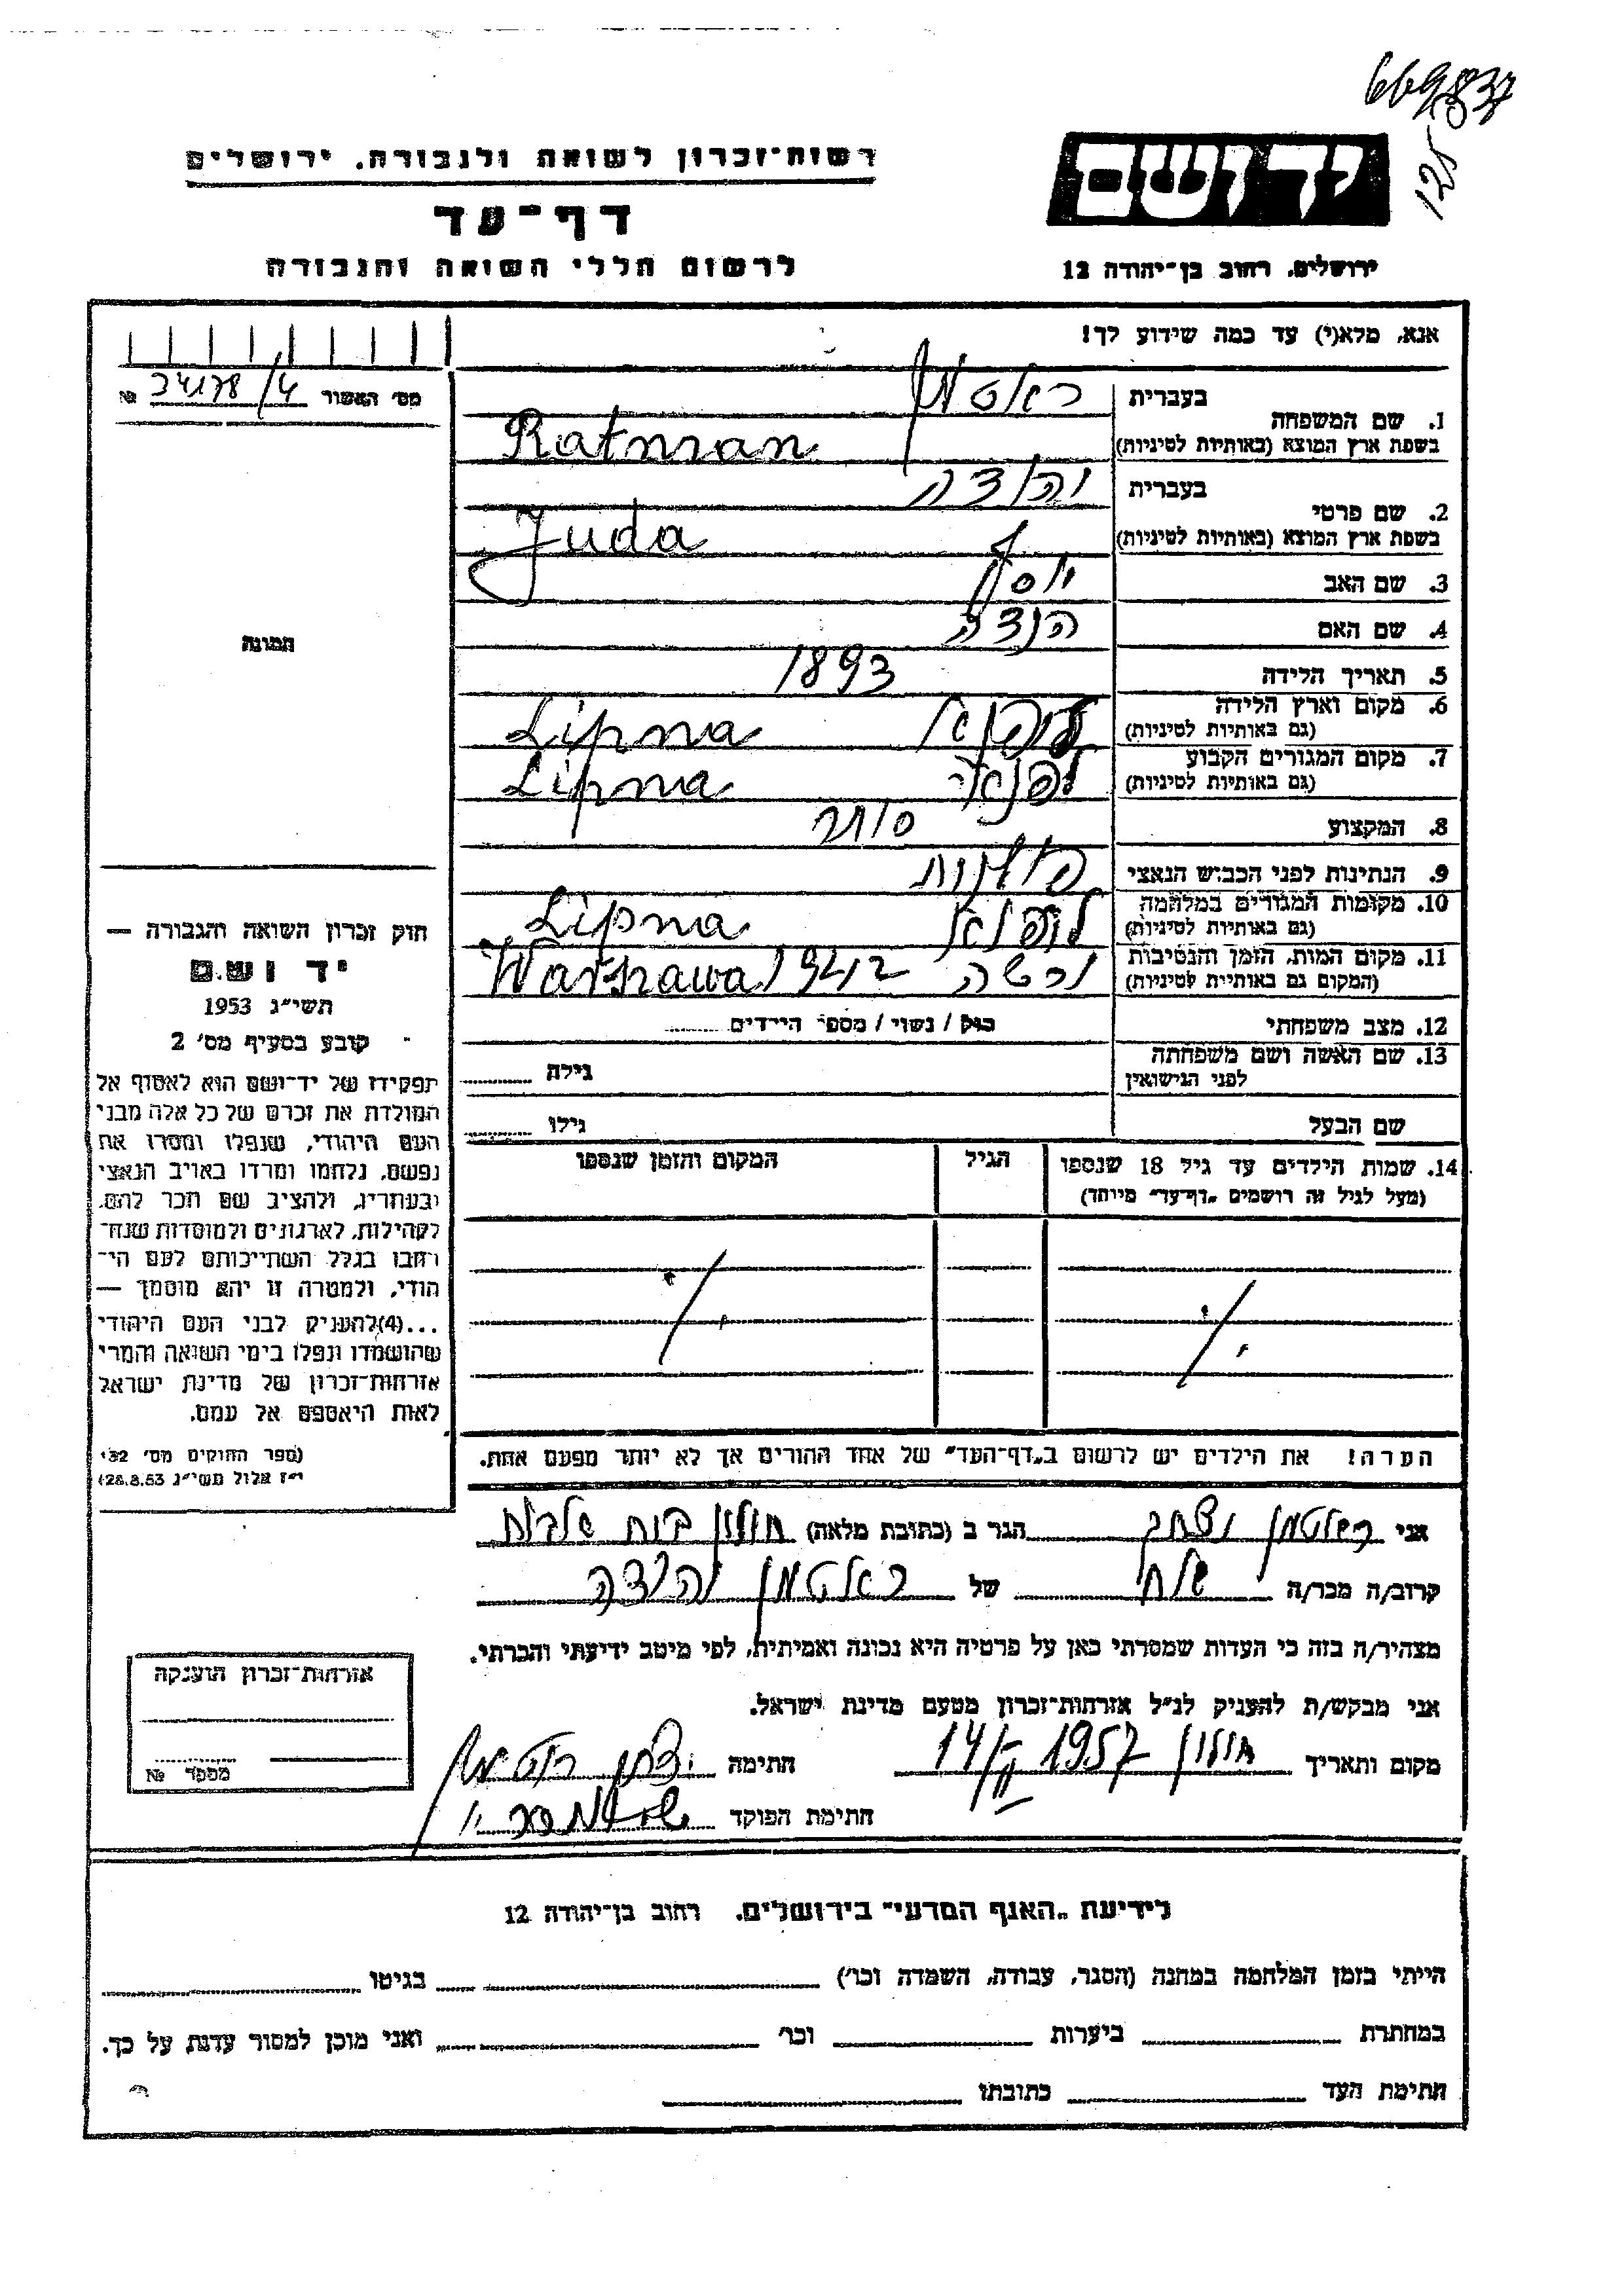 669837
125
רשות־זכרון לשואה ולגבורה, ירושלים
יד ושם
דף־עד
לרשום חללי השואה והגבורה
ירושלים, רחוב בן־יהודה 12
אנא, מלא(י) עד כמה שידוע לך!
מס׳ האשור 34178/4 №
1. שם המשפחה
בעברית ראטמן
בשפת ארץ המוצא (באותיות לטיניות) Ratman
2. שם פרטי
בעברית יהודה
בשפת ארץ המוצא (באותיות לטיניות) Juda
3. שם האב יוסף
4. שם האם הנדה
תמונה
5. תאריך הלידה 1893
6. מקום וארץ הלידה Lipna
(גם באותיות לטיניות)
7. מקום המגורים הקבוע Lipna
(גם באותיות לטיניות)
8. המקצוע סוחר
9. הנתינות לפני הכבוש הנאצי
10. מקומות המגורים במלחמה Lipna
(גם באותיות לטיניות)
11. מקום המות, הזמן והנסיבות ורשה Warszawa 1942
(המקום גם באותיות לטיניות)
12. מצב משפחתי רוק / נשוי / מספר הילדים
13. שם האשה ושם משפחתה גילה
לפני הנישואין
שם הבעל גילו
14. שמות הילדים עד גיל 18 שנספו הגיל המקום והזמן שנספו
(מעל לגיל זה רושמים „דף־עד״ מיוחד)
חוק זכרון השואה והגבורה —
יד ושם
תשי״ג 1953
קובע בסעיף מס׳ 2
תפקידו של יד־ושם הוא לאסוף אל
המולדת את זכרם של כל אלה מבני
העם היהודי, שנפלו ומסרו את
נפשם, נלחמו ומרדו באויב הנאצי
ובעוזריו, ולהציב שם וזכר להם,
לקהילות, לארגונים ולמוסדות שנח־
רבו בגלל השתייכותם לעם הי־
הודי, ולמטרה זו יהא מוסמך —
...(4)להעניק לבני העם היהודי
שהושמדו ונפלו בימי השואה והמרי
אזרחות־זכרון של מדינת ישראל
לאות היאספם אל עמם.
(ספר החוקים מס׳ 132
י״ז אלול תשי״ג 28.8.53)
הערה! את הילדים יש לרשום ב„דף־העד״ של אחד ההורים אך לא יותר מפעם אחת.
אני ראטמן יצחק הגר ב (כתובת מלאה) חולון
קרוב/ה מכר/ה של ראטמן יהודה
מצהיר/ה בזה כי העדות שמסרתי כאן על פרטיה היא נכונה ואמיתית, לפי מיטב ידיעתי והכרתי.
אני מבקש/ת להעניק לנ״ל אזרחות־זכרון מטעם מדינת ישראל.
מקום ותאריך חולון 1957 חתימה יצחק
חתימת הפוקד
אזרחות־זכרון הוענקה
מספר №
לידיעת „האגף המדעי״ בירושלים, רחוב בן־יהודה 12
הייתי בזמן המלחמה במחנה (הסגר, עבודה, השמדה וכו׳) בגיטו
במחתרת ביערות וכו׳ ואני מוכן למסור עדות על כך.
חתימת העד כתובתו